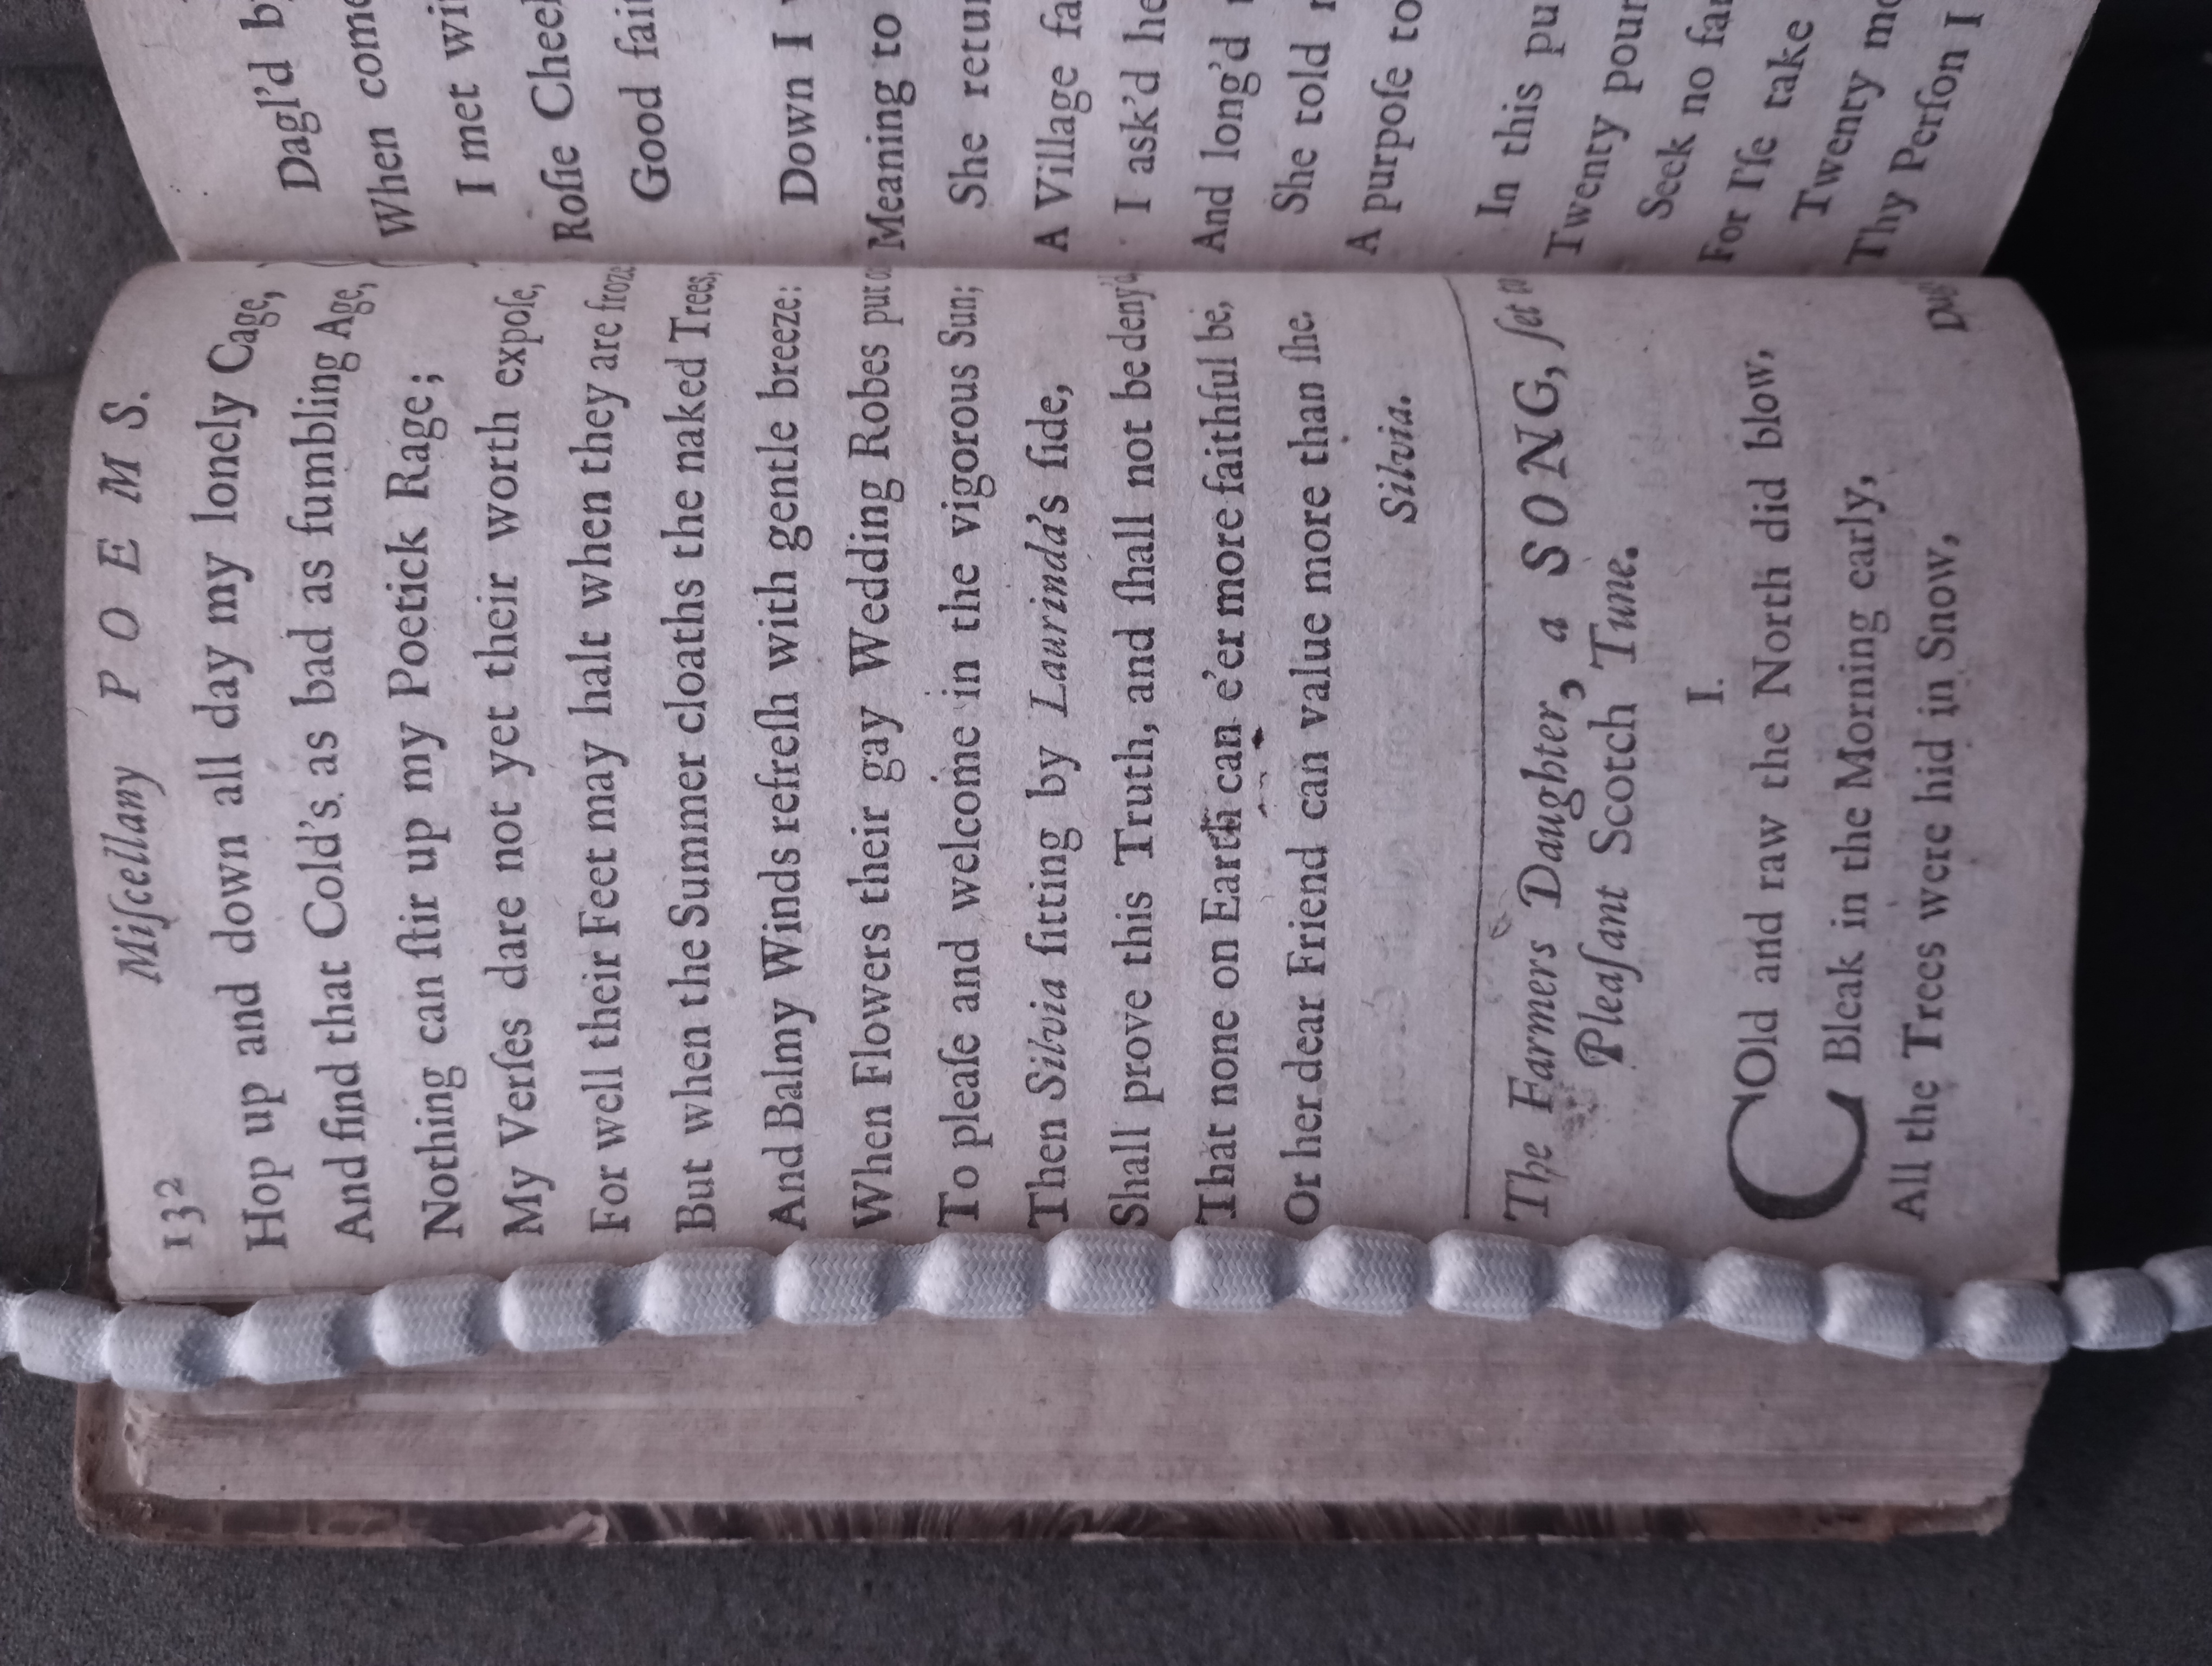 132 Miſcellany POEMS.
Hop up and down all day my lonely Cage,
And find that Cold's as bad as fumbling Age,
Nothing can ſtir up my Poetick Rage;
My Verſes dare not yet their worth expoſe,
For well their Feet may halt when they are froze
But when the Summer cloaths the naked Trees,
And Balmy Winds refreſh with gentle breeze:
When Flowers their gay Wedding Robes put o
To pleaſe and welcome in the vigorous Sun;
Then Silvia ſitting by Laurinda's ſide,
Shall prove this Truth, and ſhall not be deny'd
That none on Earth can e'er more faithful be,
Or her dear Friend can value more than ſhe.
Silvia.
The Farmers Daughter, a SONG, ſet to
Pleaſant Scotch Tune.
I.
COld and raw the North did blow,
Bleak in the Morning early,
All the Trees were hid in Snow,
Dagl'd b
When come
I met wi
Roſie Cheek
Good fait
Down I
Meaning to
She retur
A Village fa
I ask'd he
And long'd
She told
A purpoſe to
In this pu
Twenty pour
Seek no far
For I'ſe take
Twenty mo
Thy Perſon I